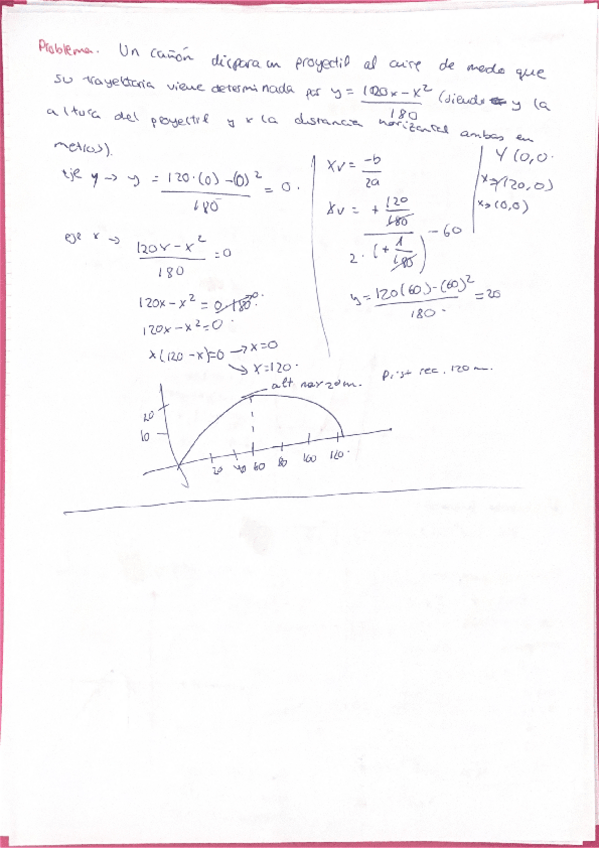 Problema. Un cañón dispara un proyectil al aire de modo que
su trayectoria viene determinada por y = (120x - x²)/180 (siendo y la
altura del proyectil y x la distancia horizontal ambas en
metros).
eje y → y = (120·(0) - (0)²)/180 = 0.
eje x → (120x - x²)/180 = 0
120x - x² = 0·180 → 0.
120x - x² = 0
x(120 - x) = 0 → x = 0
→ x = 120.
Xv = -b/2a
Xv = (+120/180)/(2·(+1/180)) - 60
y = (120(60) - (60)²)/180. = 20
Y (0,0.
x → (120, 0)
x → (0,0)
alt max 20 m.
rec. 120 m.
20
10
20 40 60 80 100 120.